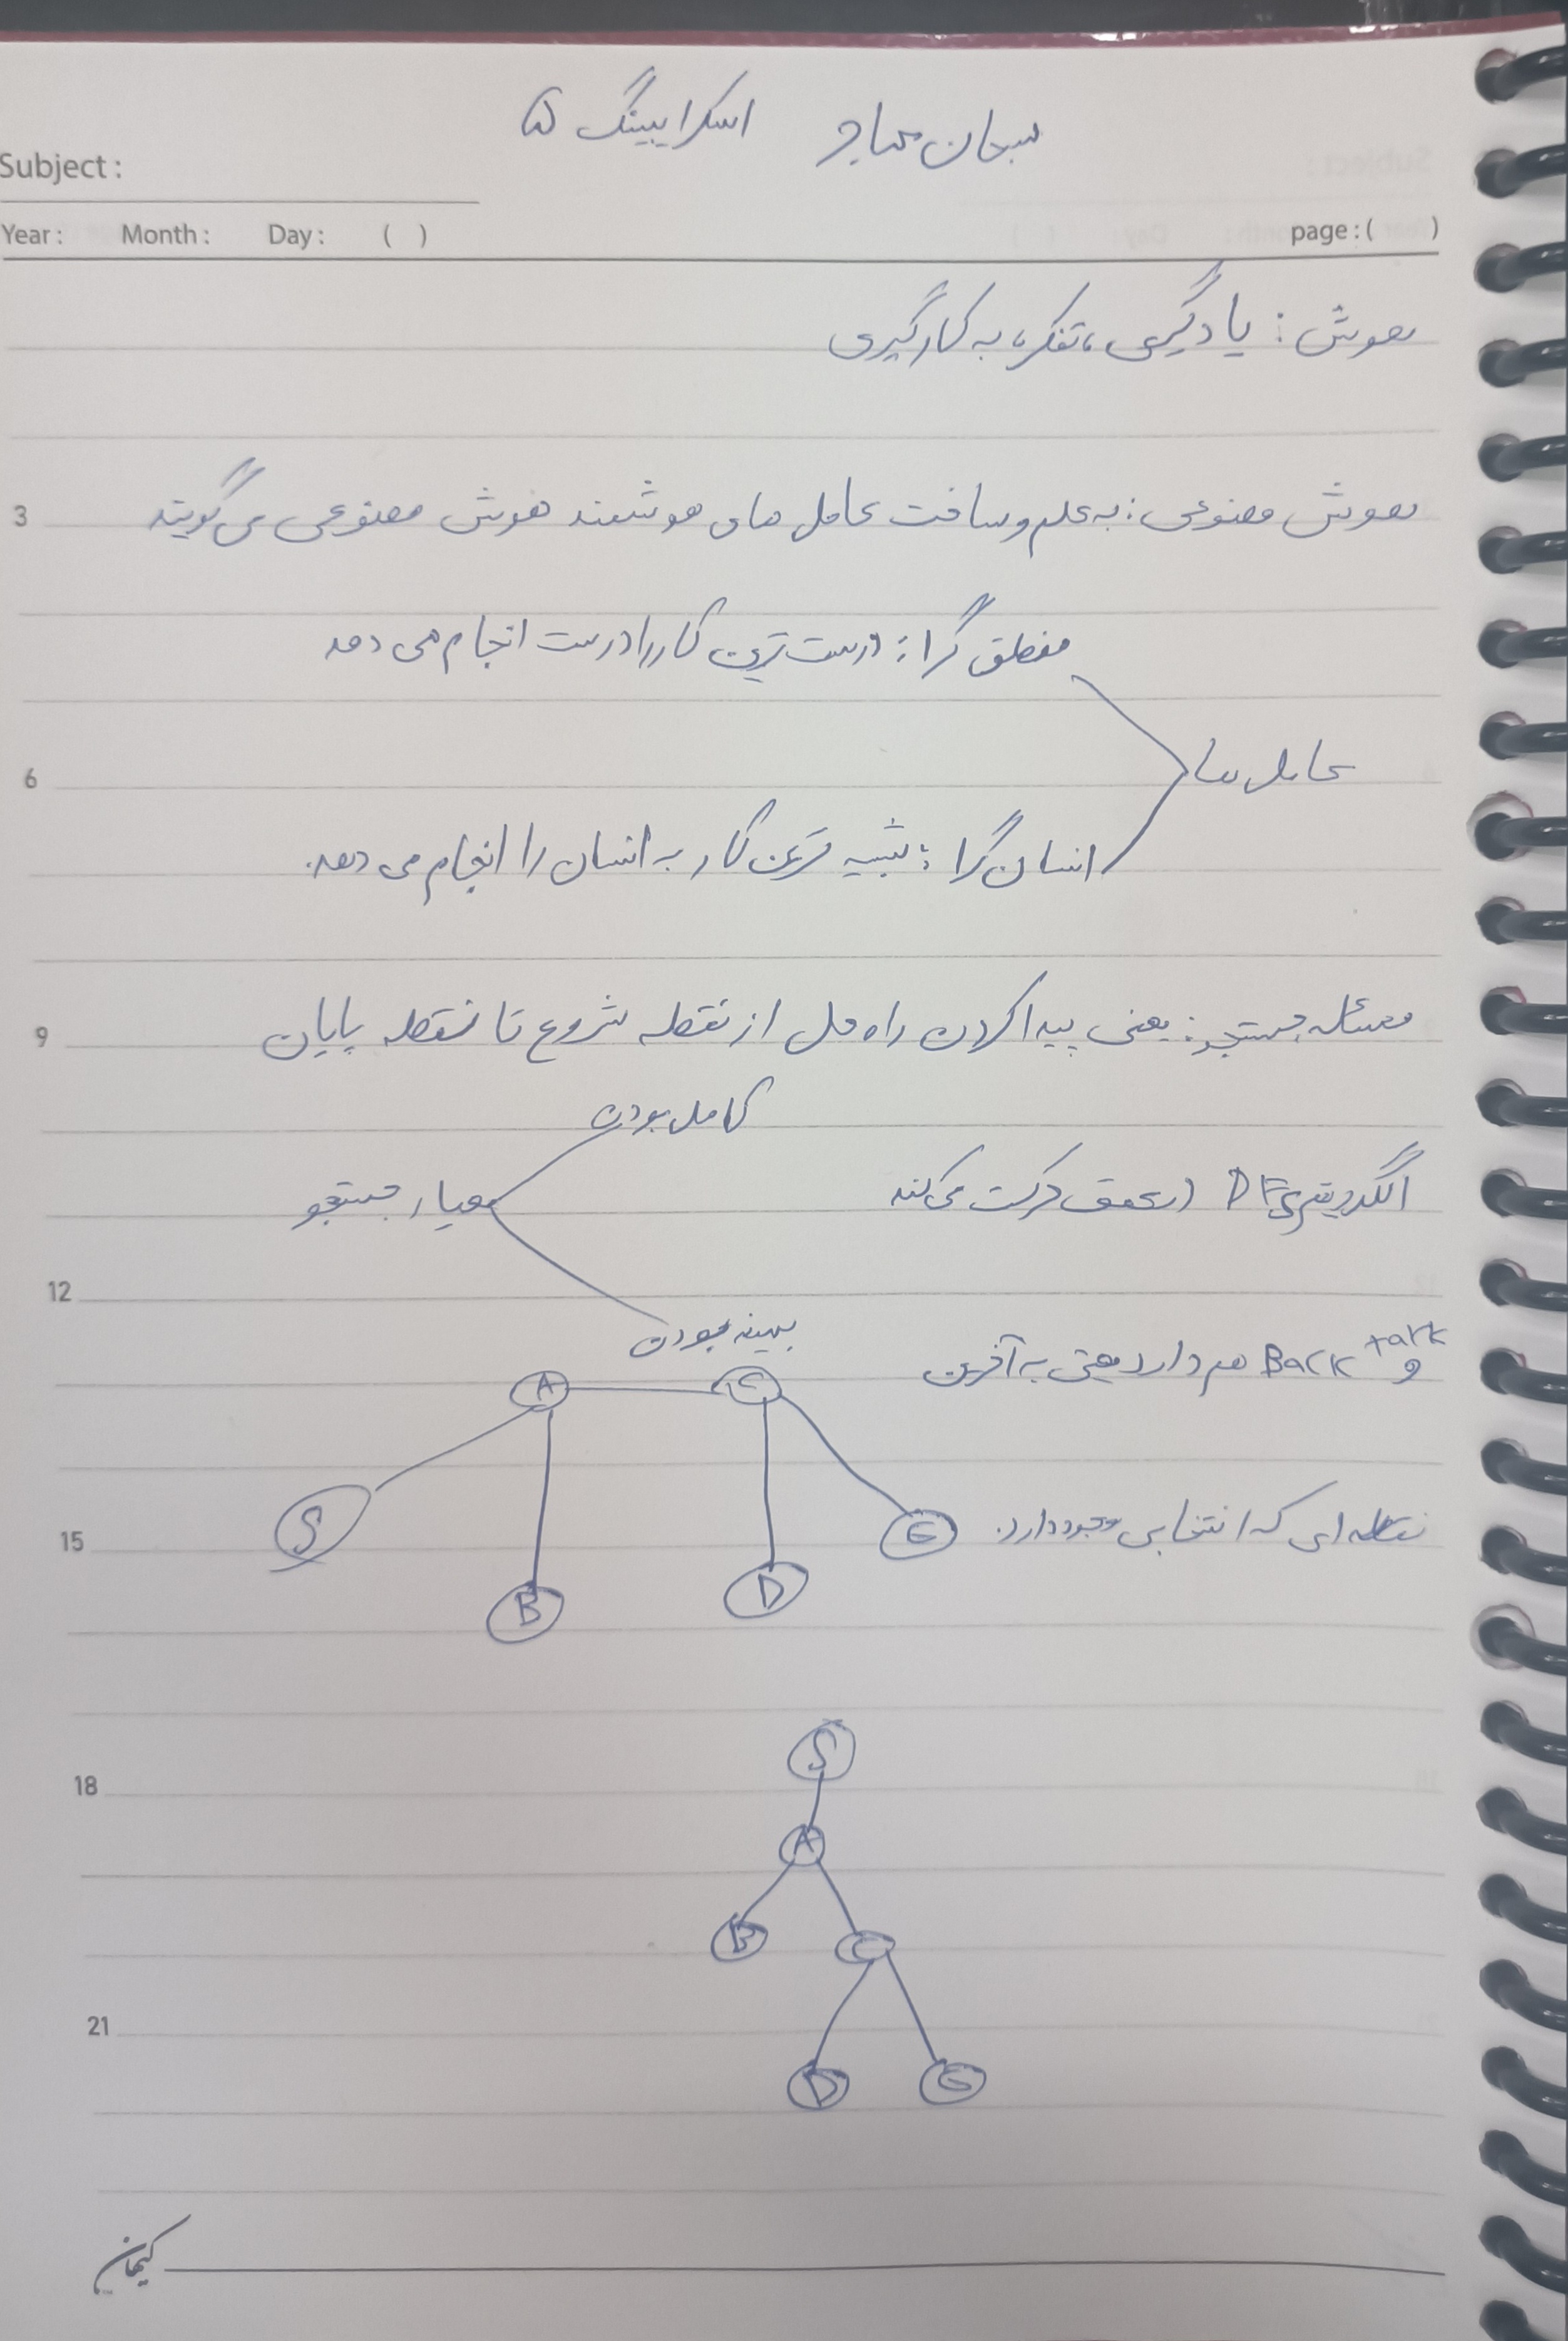 سبحان اسکرایبینگ ۵
Subject :
Year : Month : Day : ( ) page : ( )
هوش : یادگیری ، تفکر ، به کارگیری
3
هوش مصنوعی : به علم و ساخت عامل های هوشمند هوش مصنوعی می گویند
منطق گرا : درست ترین کار را درست انجام می دهد
6
عامل ها
انسان گرا : شبیه ترین کار به انسان را انجام می دهد.
9
مسئله جستجو : یعنی پیدا کردن راه حل از نقطه شروع تا نقطه پایان
کامل بودن
الگوریتم DFS در عمق حرکت می کند
معیار جستجو
12
بهینه بودن
و Back tark هم دارد یعنی به آخرین
A C
نقطه ای که انتخابی وجود دارد.
S G
15
B D
S
18
A
B C
21
D G
کیهان